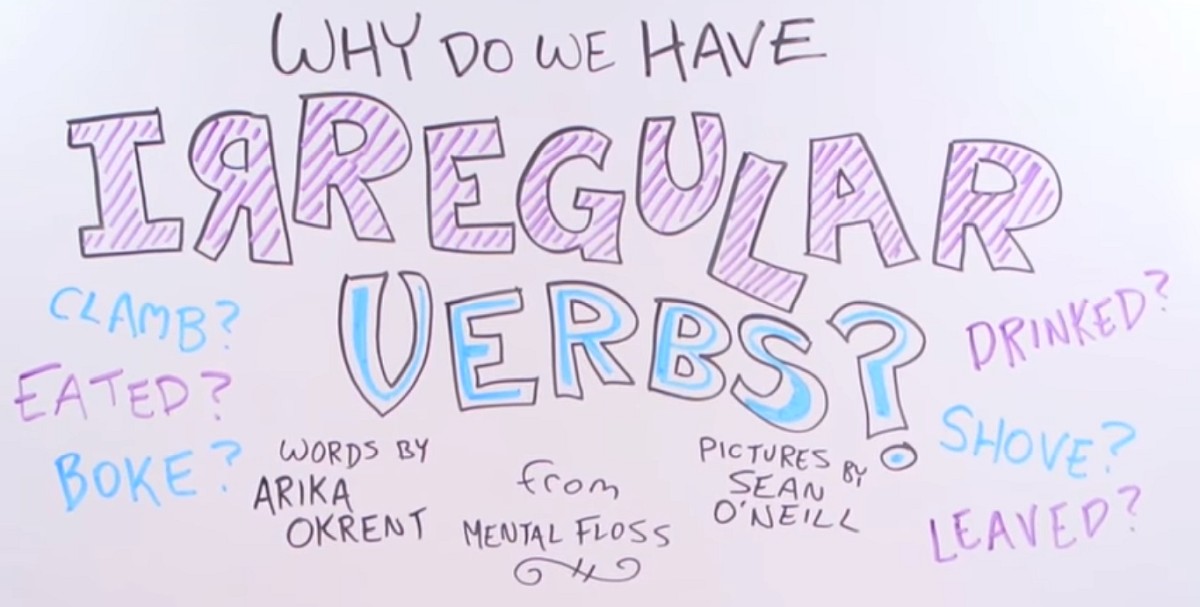 WHY DO WE HAVE
IRREGULAR
VERBS?
CLAMB?
EATED?
BOKE?
DRINKED?
SHOVE?
LEAVED?
WORDS BY
ARIKA
OKRENT
from
MENTAL FLOSS
PICTURES BY
SEAN
O'NEILL